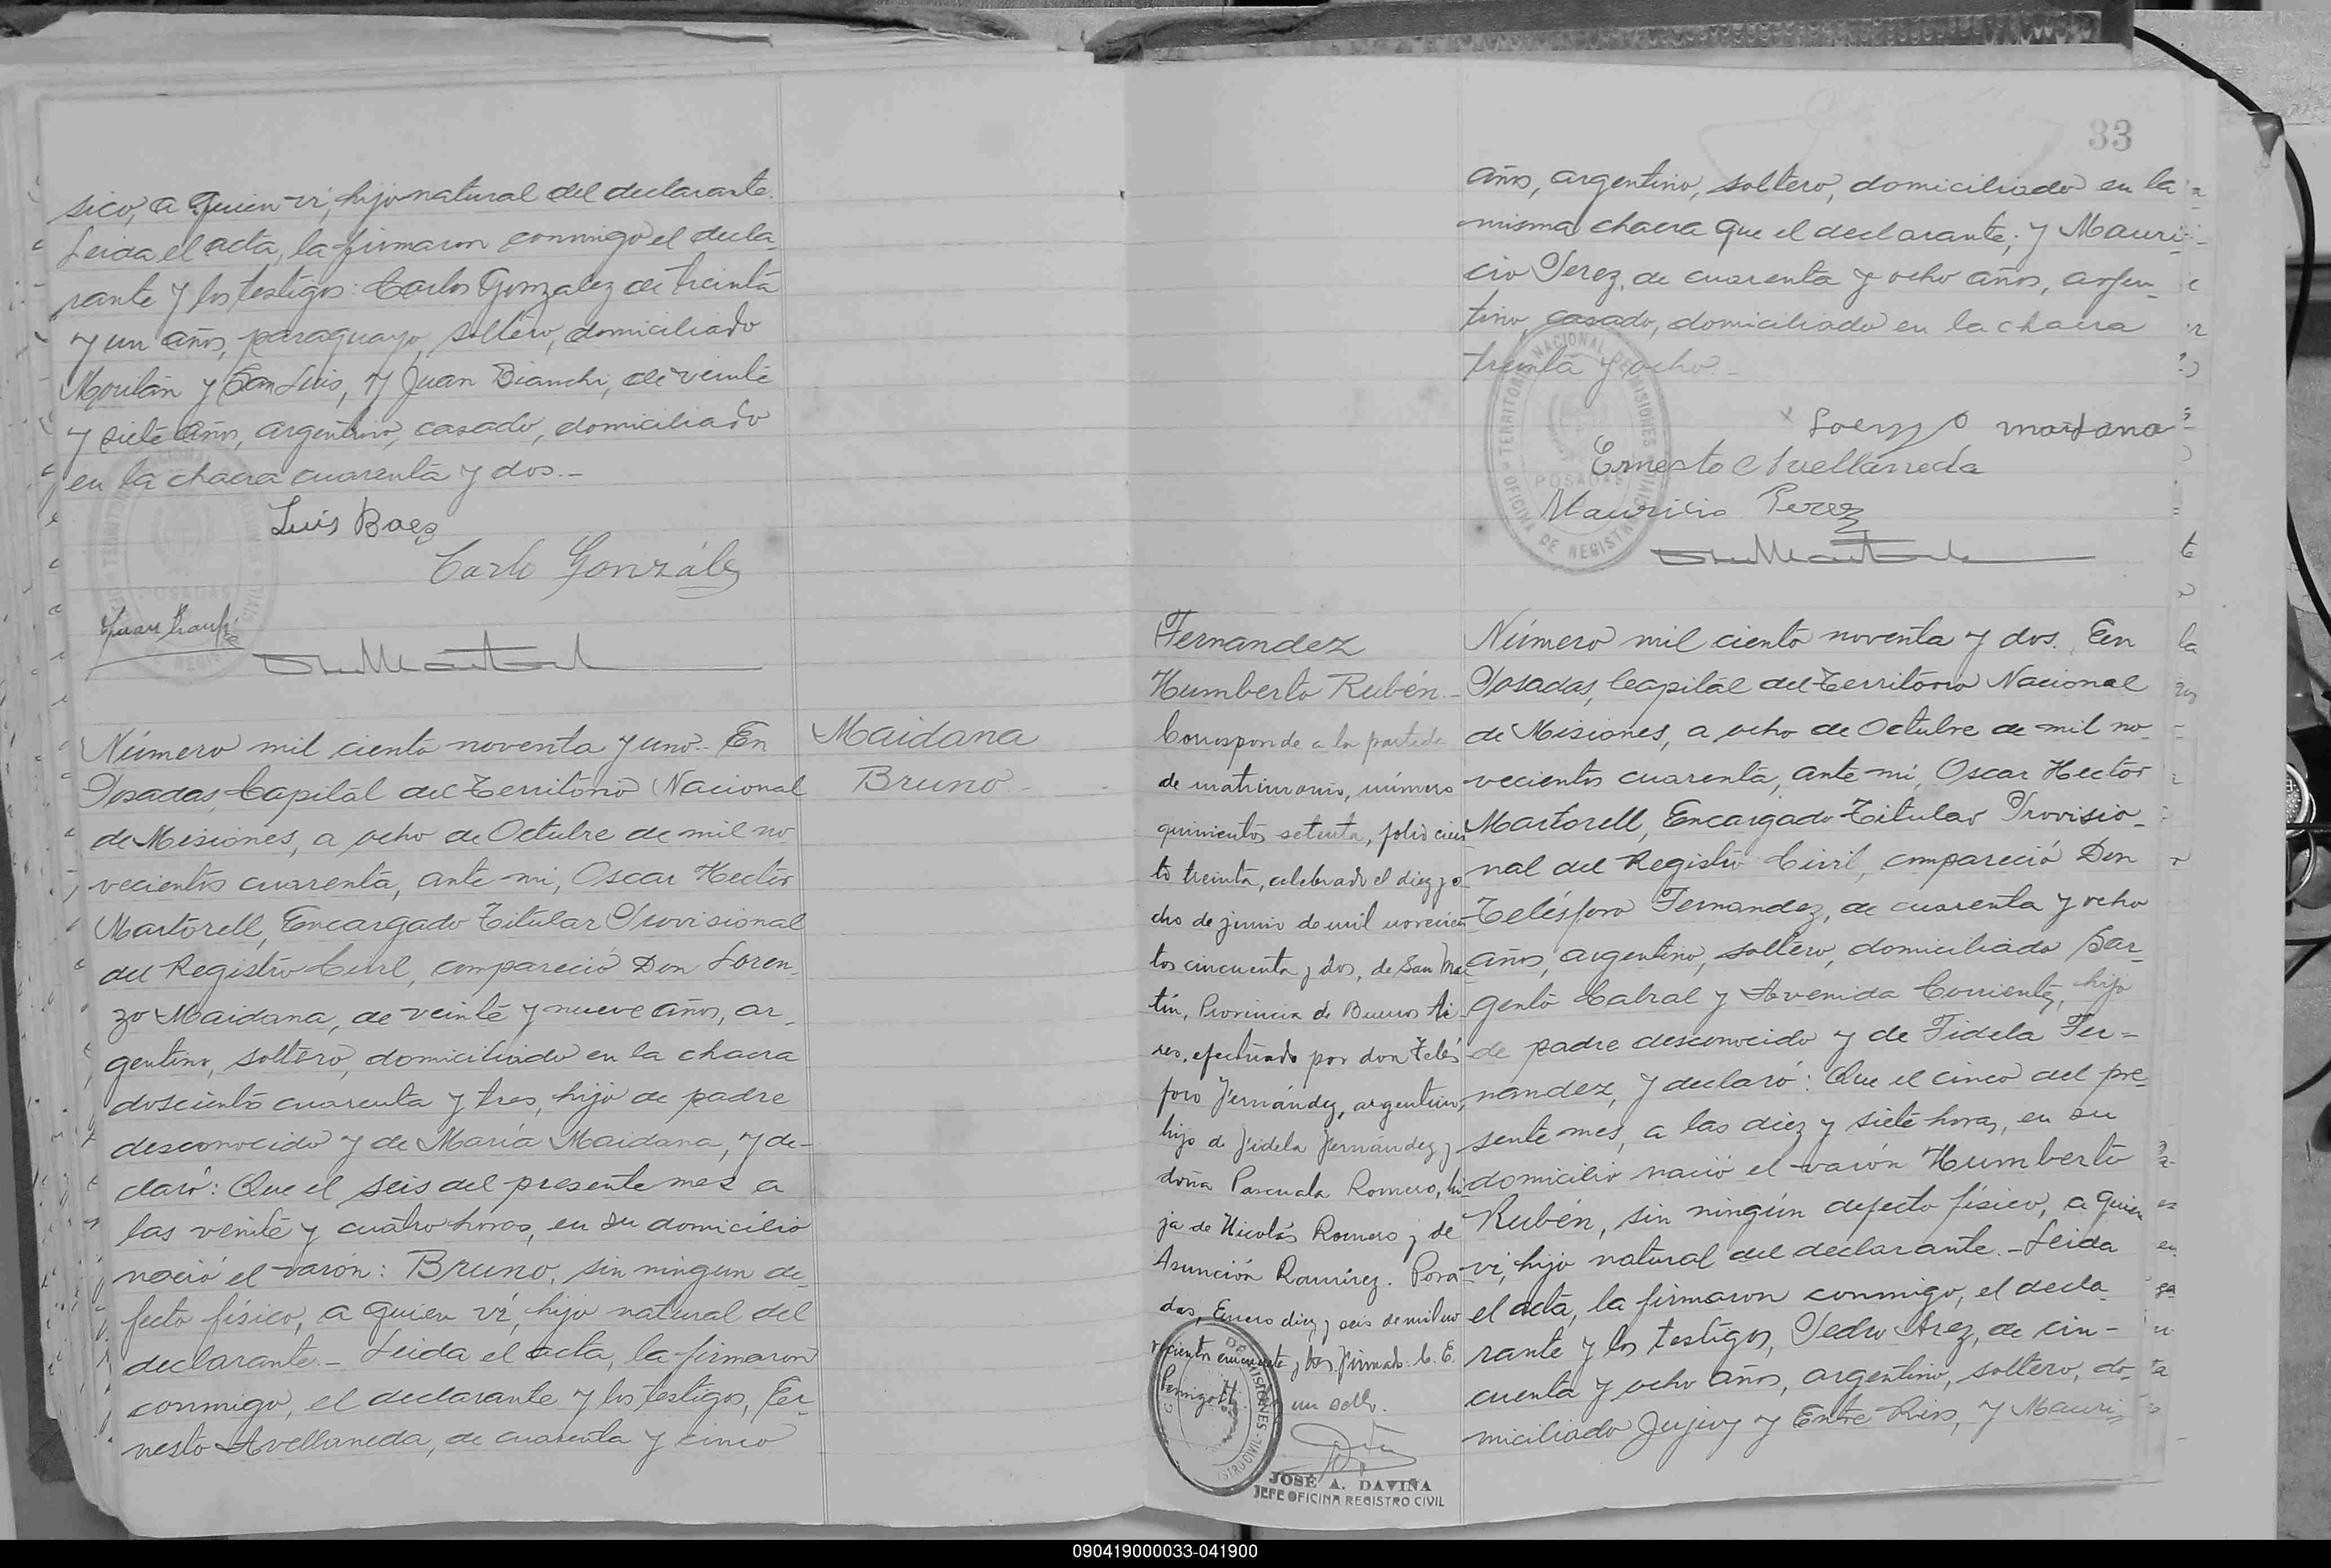 sico, a quien ví, hijo natural del declarante.
Leida el acta, la firmaron conmigo el decla-
rante y los testigos: Carlos Gonzalez de treinta
y un años, paraguayo, soltero, domiciliado
Moritán y San Luis, y Juan Bianchi, de veinte
y siete años, argentino, casado, domiciliado
en la chacra cuarenta y dos.-
Luis Baez
Carlo González
POSADAS
Número mil ciento noventa y uno.- En
Posadas, Capital del Territorio Nacional
de Misiones, a ocho de Octubre de mil no-
vecientos cuarenta, ante mi, Oscar Hector
Martorell, Encargado Titular Provisional
del Registro Civil, compareció Don Loren-
zo Maidana, de veinte y nueve años, ar-
gentino, soltero, domiciliado en la chacra
doscientos cuarenta y tres, hijo de padre
desconocido y de María Maidana, y de-
claró: Que el seis del presente mes a
las veinte y cuatro horas, en su domicilio
nació el varón: Bruno, sin ningun de-
fecto físico, a quien ví, hijo natural del
declarante.- Leida el acta, la firmaron
conmigo, el declarante y los testigos, Er-
nesto Avellaneda, de cuarenta y cinco
Maidana
Bruno.-
33
años, argentino, soltero, domiciliado en la
misma chacra que el declarante; y Mauri-
cio Perez, de cuarenta y ocho años, argen-
tino, casado, domiciliado en la chacra
treinta y ocho.-
TERRITORIO NACIONAL DE MISIONES
POSADAS
OFICINA DE REGISTRO CIVIL
Ernesto Avellaneda
Mauricio Perez
Fernandez
Humberto Rubén.-
Corresponde a la partida
de matrimonio, número
quinientos setenta, folio cien-
to treinta, celebrado el diez y o-
cho de junio de mil novecien-
tos cincuenta y dos, de San Mar-
tín, Provincia de Buenos Ai-
res, efectuado por don Telés-
foro Fernández, argentino,
hijo de Fidela Fernández y
doña Pascuala Romero, hi-
ja de Nicolás Romero y de
Asunción Ramírez. Posa-
das, Enero diez y seis de mil no-
vecientos cincuenta y tres. Firmado: C. E.
Pernigotti. un sello.
DE MISIONES
JOSÉ A. DAVIÑA
JEFE OFICINA REGISTRO CIVIL
Número mil ciento noventa y dos. En
Posadas, Capital del Territorio Nacional
de Misiones, a ocho de Octubre de mil no-
vecientos cuarenta, ante mi, Oscar Hector
Martorell, Encargado Titular Provisio-
nal del Registro Civil, compareció Don
Telésforo Fernandez, de cuarenta y ocho
años, argentino, soltero, domiciliado Sar-
gento Cabral y Avenida Corrientes, hijo
de padre desconocido y de Fidela Fer-
nandez, y declaró: Que el cinco del pre-
sente mes, a las diez y siete horas, en su
domicilio nació el varón Humberto
Rubén, sin ningún defecto físico, a quien
ví, hijo natural del declarante.- Leida
el acta, la firmaron conmigo, el decla-
rante y los testigos, Pedro Arez, de cin-
cuenta y ocho años, argentino, soltero, do-
miciliado Jujuy y Entre Rios, y Mauri-
090419000033-041900